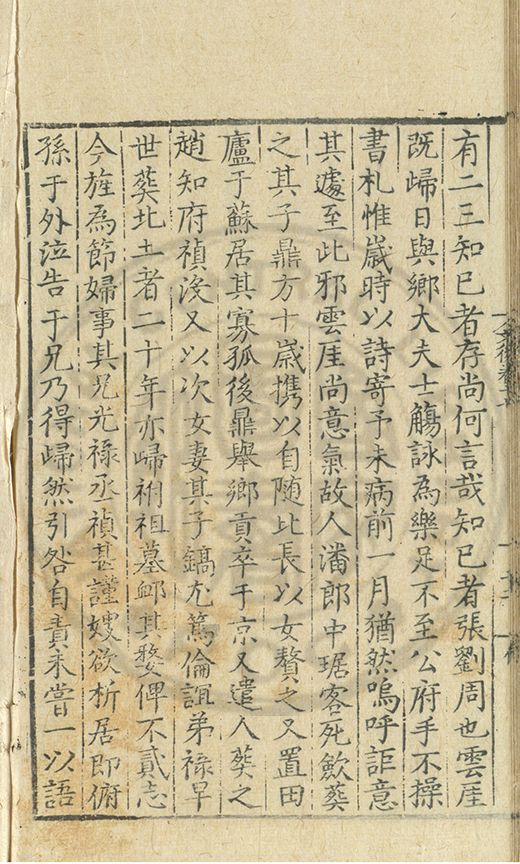 有二三知巳者存尚何言哉知巳者張劉周也雲厓
既歸日與鄉大夫士觴詠為樂足不至公府手不操
書札惟歲時以詩寄予未病前一月猶然嗚呼詎意
其遽至此邪雲厓尚意氣故人潘郎中琚客死歛葬
之其子鼎方十歲携以自随比長以女贅之又置田
廬于蘇居其寡孤後鼎舉鄉貢卒于京又遣人葬之
趙知府禎沒又以次女妻其子鎬尤篤倫誼弟祿早
世葬北土者二十年亦歸祔祖墓䘏其嫠俾不貳志
今旌為節婦事其兄光祿丞禎甚謹嫂欲析居即俯
孫于外泣告于兄乃得歸然引咎自責未嘗一以語